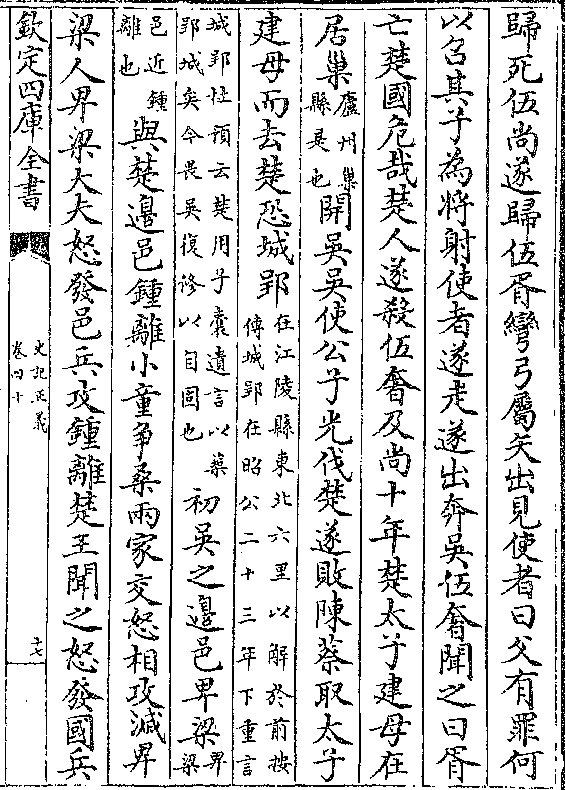 歸死伍尚遂歸伍胥彎弓屬矢出見使者曰父有罪何
以召其子為將射使者遂走遂出奔吳伍奢聞之曰胥
亡楚國危哉楚人遂殺伍奢及尚十年楚太子建母在
居巢廬州巢縣是也開吳吳使公子光伐楚遂敗陳蔡取太子
建母而去楚恐城郢在江陵縣東北六里以解於前按傳城郢在昭公二十三年下重言
城郢杜預云楚用子囊遺言以築郢城矣今畏吳復修以自固也初吳之邊邑卑梁卑梁
邑近鍾離也與楚邊邑鍾離小童爭桑兩家交怒相攻滅卑
梁人卑梁大夫怒發邑兵攻鍾離楚王聞之怒發國兵
欽定四庫全書
史記正義
卷四十
十七